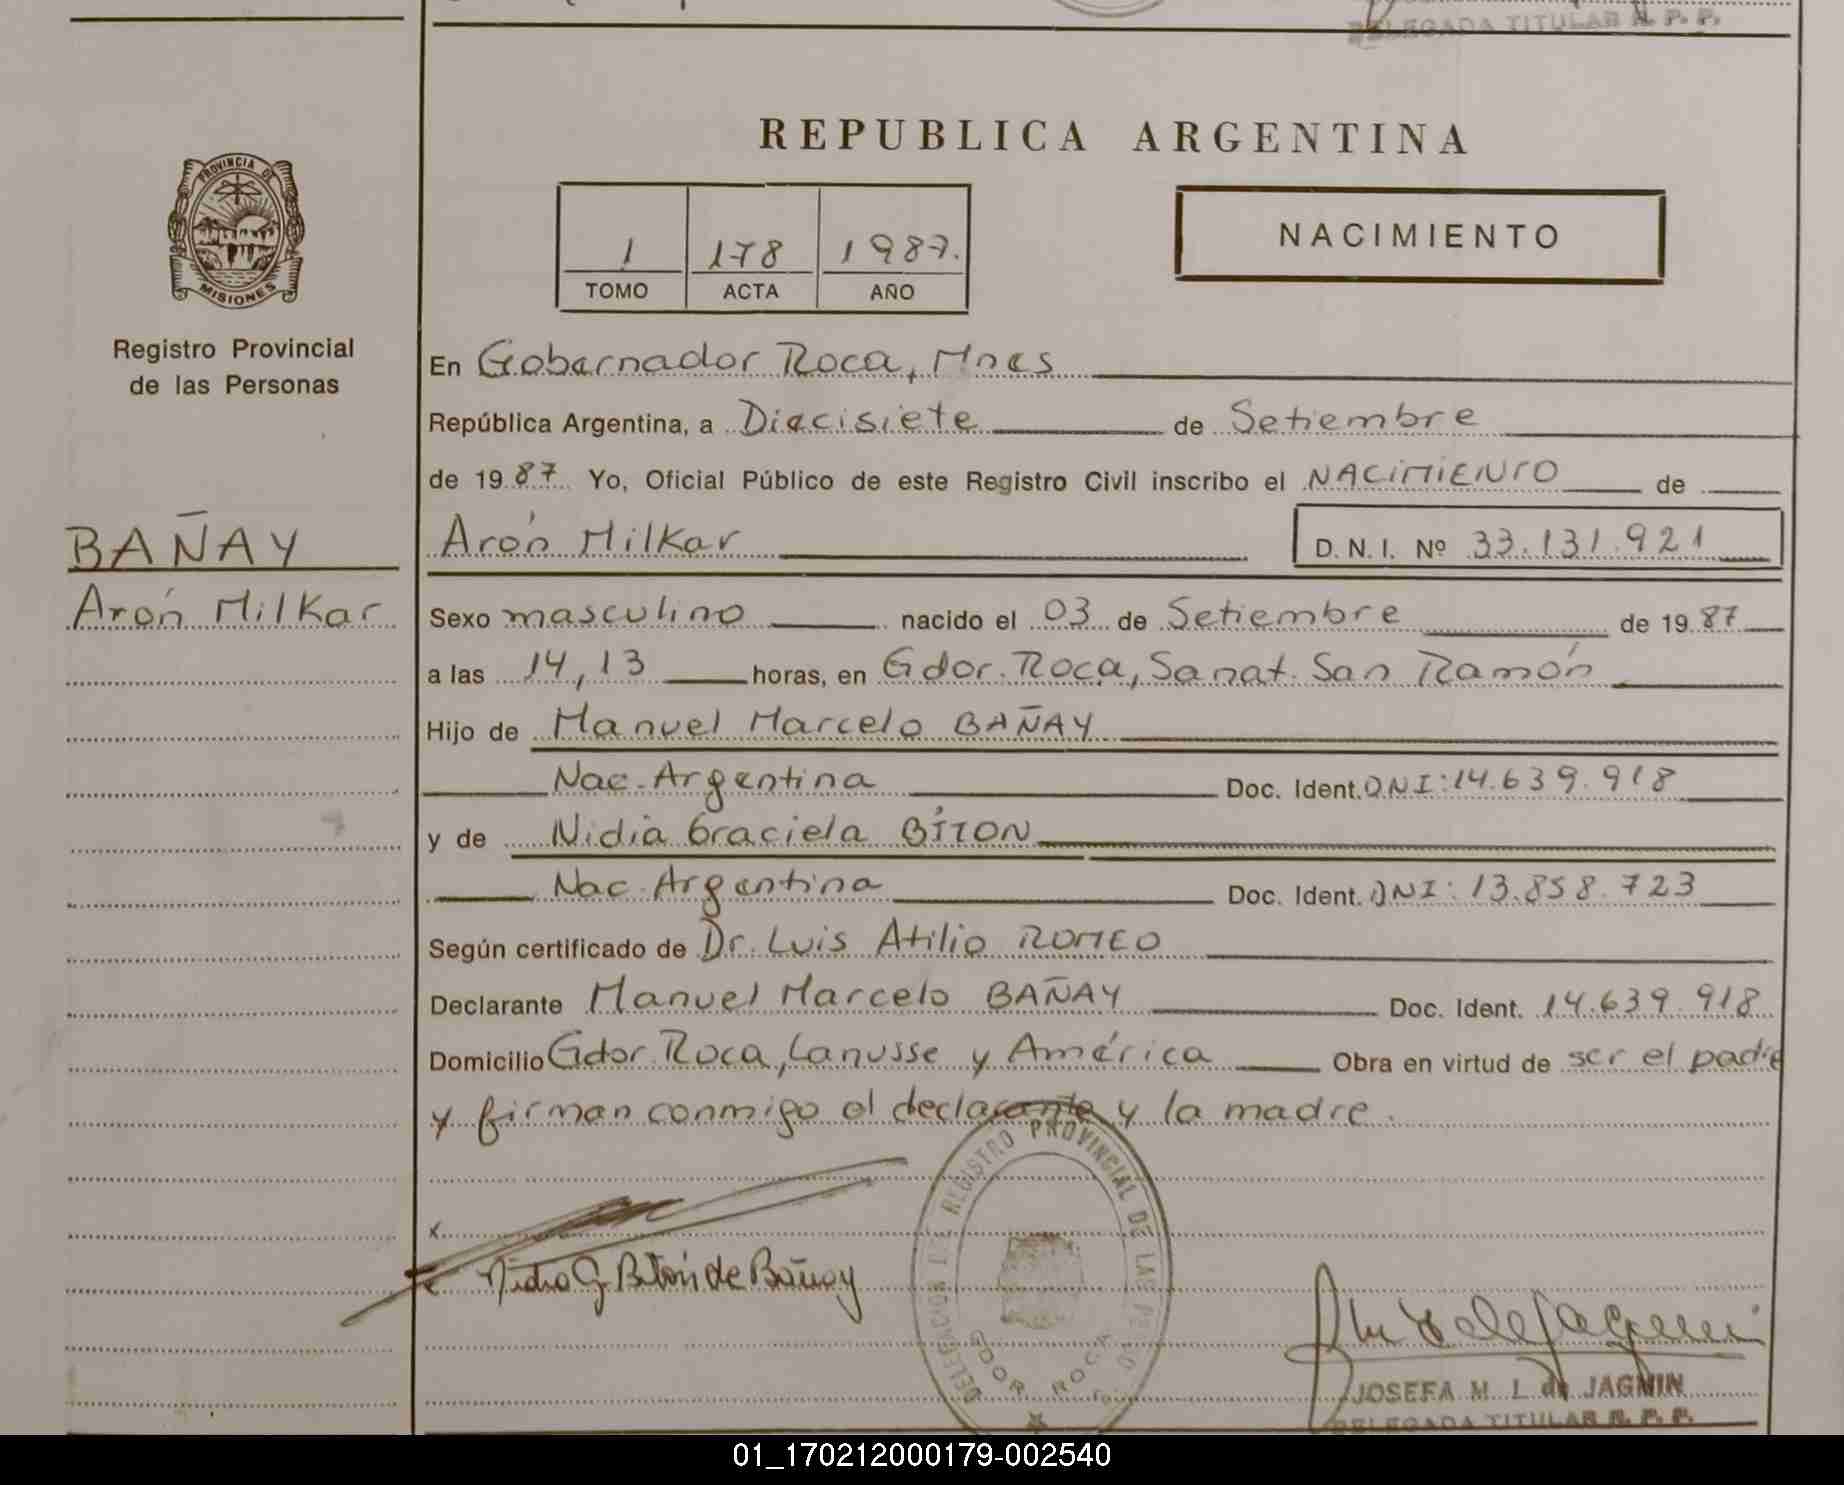 DELEGADA TITULAR R. P. P.
REPUBLICA ARGENTINA
PROVINCIA DE
MISIONES
1 178 1987.
TOMO ACTA AÑO
NACIMIENTO
Registro Provincial
de las Personas
En Gobernador Roca, Mnes
República Argentina, a Diecisiete de Setiembre
de 1987 Yo, Oficial Público de este Registro Civil inscribo el NACIMIENTO de
BAÑAY
Arón Milkar D. N. I. Nº 33.131.921
Arón Milkar
Sexo masculino nacido el 03 de Setiembre de 1987
a las 14,13 horas, en Gdor. Roca, Sanat. San Ramón
Hijo de Manuel Marcelo BAÑAY
Nac. Argentina Doc. Ident. DNI: 14.639.918
y de Nidia Graciela BÍTON
Nac. Argentina Doc. Ident. DNI: 13.858.723
Según certificado de Dr. Luis Atilio ROMEO
Declarante Manuel Marcelo BAÑAY Doc. Ident. 14.639.918
Domicilio Gdor. Roca, Lanusse y América Obra en virtud de ser el padre
y firman conmigo el declarante y la madre.
x
Nidia G. Bitón de Bañay
DELEGACION DEL REGISTRO PROVINCIAL DE LAS
GDOR ROCA
JOSEFA M. L. de JAGMIN
DELEGADA TITULAR R. P. P.
01_170212000179-002540